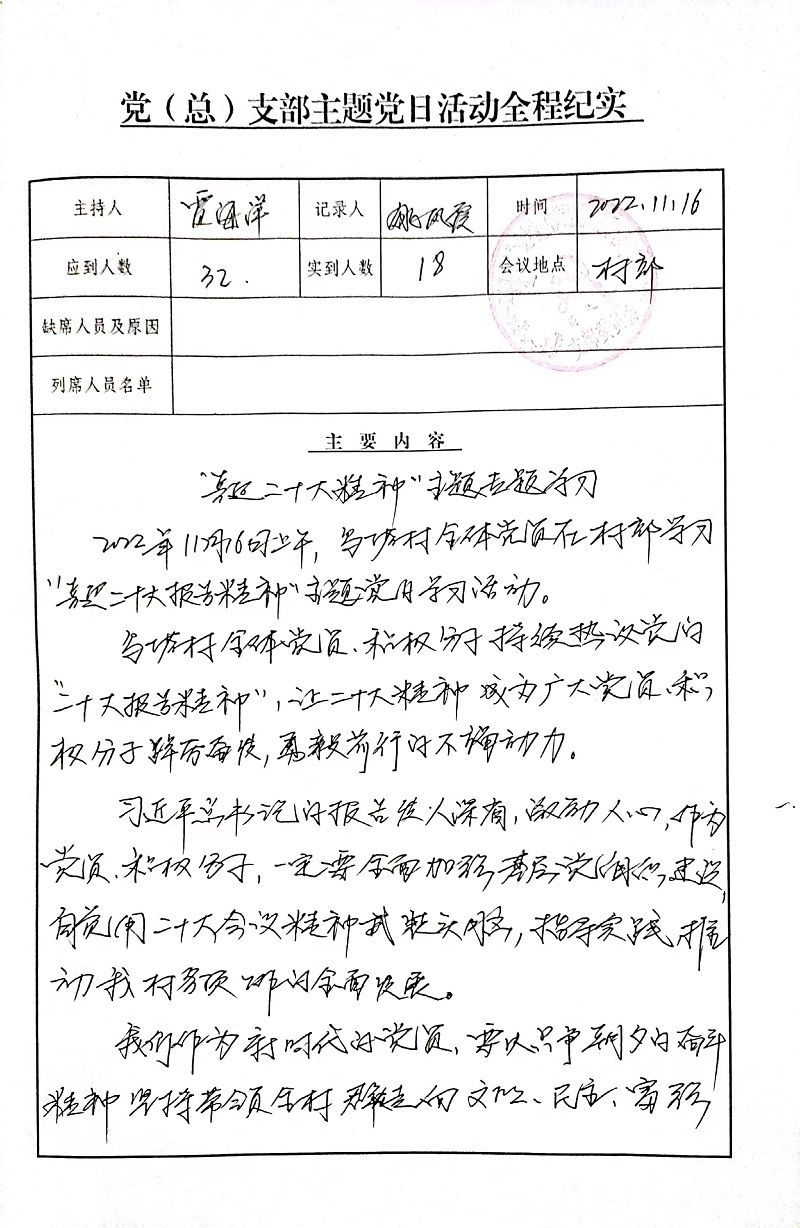 党（总）支部主题党日活动全程纪实
主持人 贾海洋 记录人 时间 2022.11.16
应到人数 32. 实到人数 18 会议地点 村部
缺席人员及原因
列席人员名单
主要内容
"喜迎二十大精神"主题专题学习
2022年11月16日上午，乌塔村全体党员在村部学习
"喜迎二十大报告精神"主题党日学习活动。
乌塔村全体党员、积极分子持续热议党的
"二十大报告精神"，让二十大精神成为广大党员、积
极分子踔厉奋发，勇毅前行的不竭动力。
习近平总书记的报告使人深有，激励人心，作为
党员、积极分子，一定要全面加强基层党组织建设，
自觉用二十大会议精神武装头脑，指导实践，推
动我村各项工作的全面发展。
我们作为新时代的党员，要以只争朝夕的奋斗
精神坚持带领全村群众走向文明、民主、富强